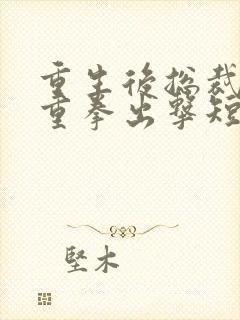 重生後总裁
重拳出擊短
堅木